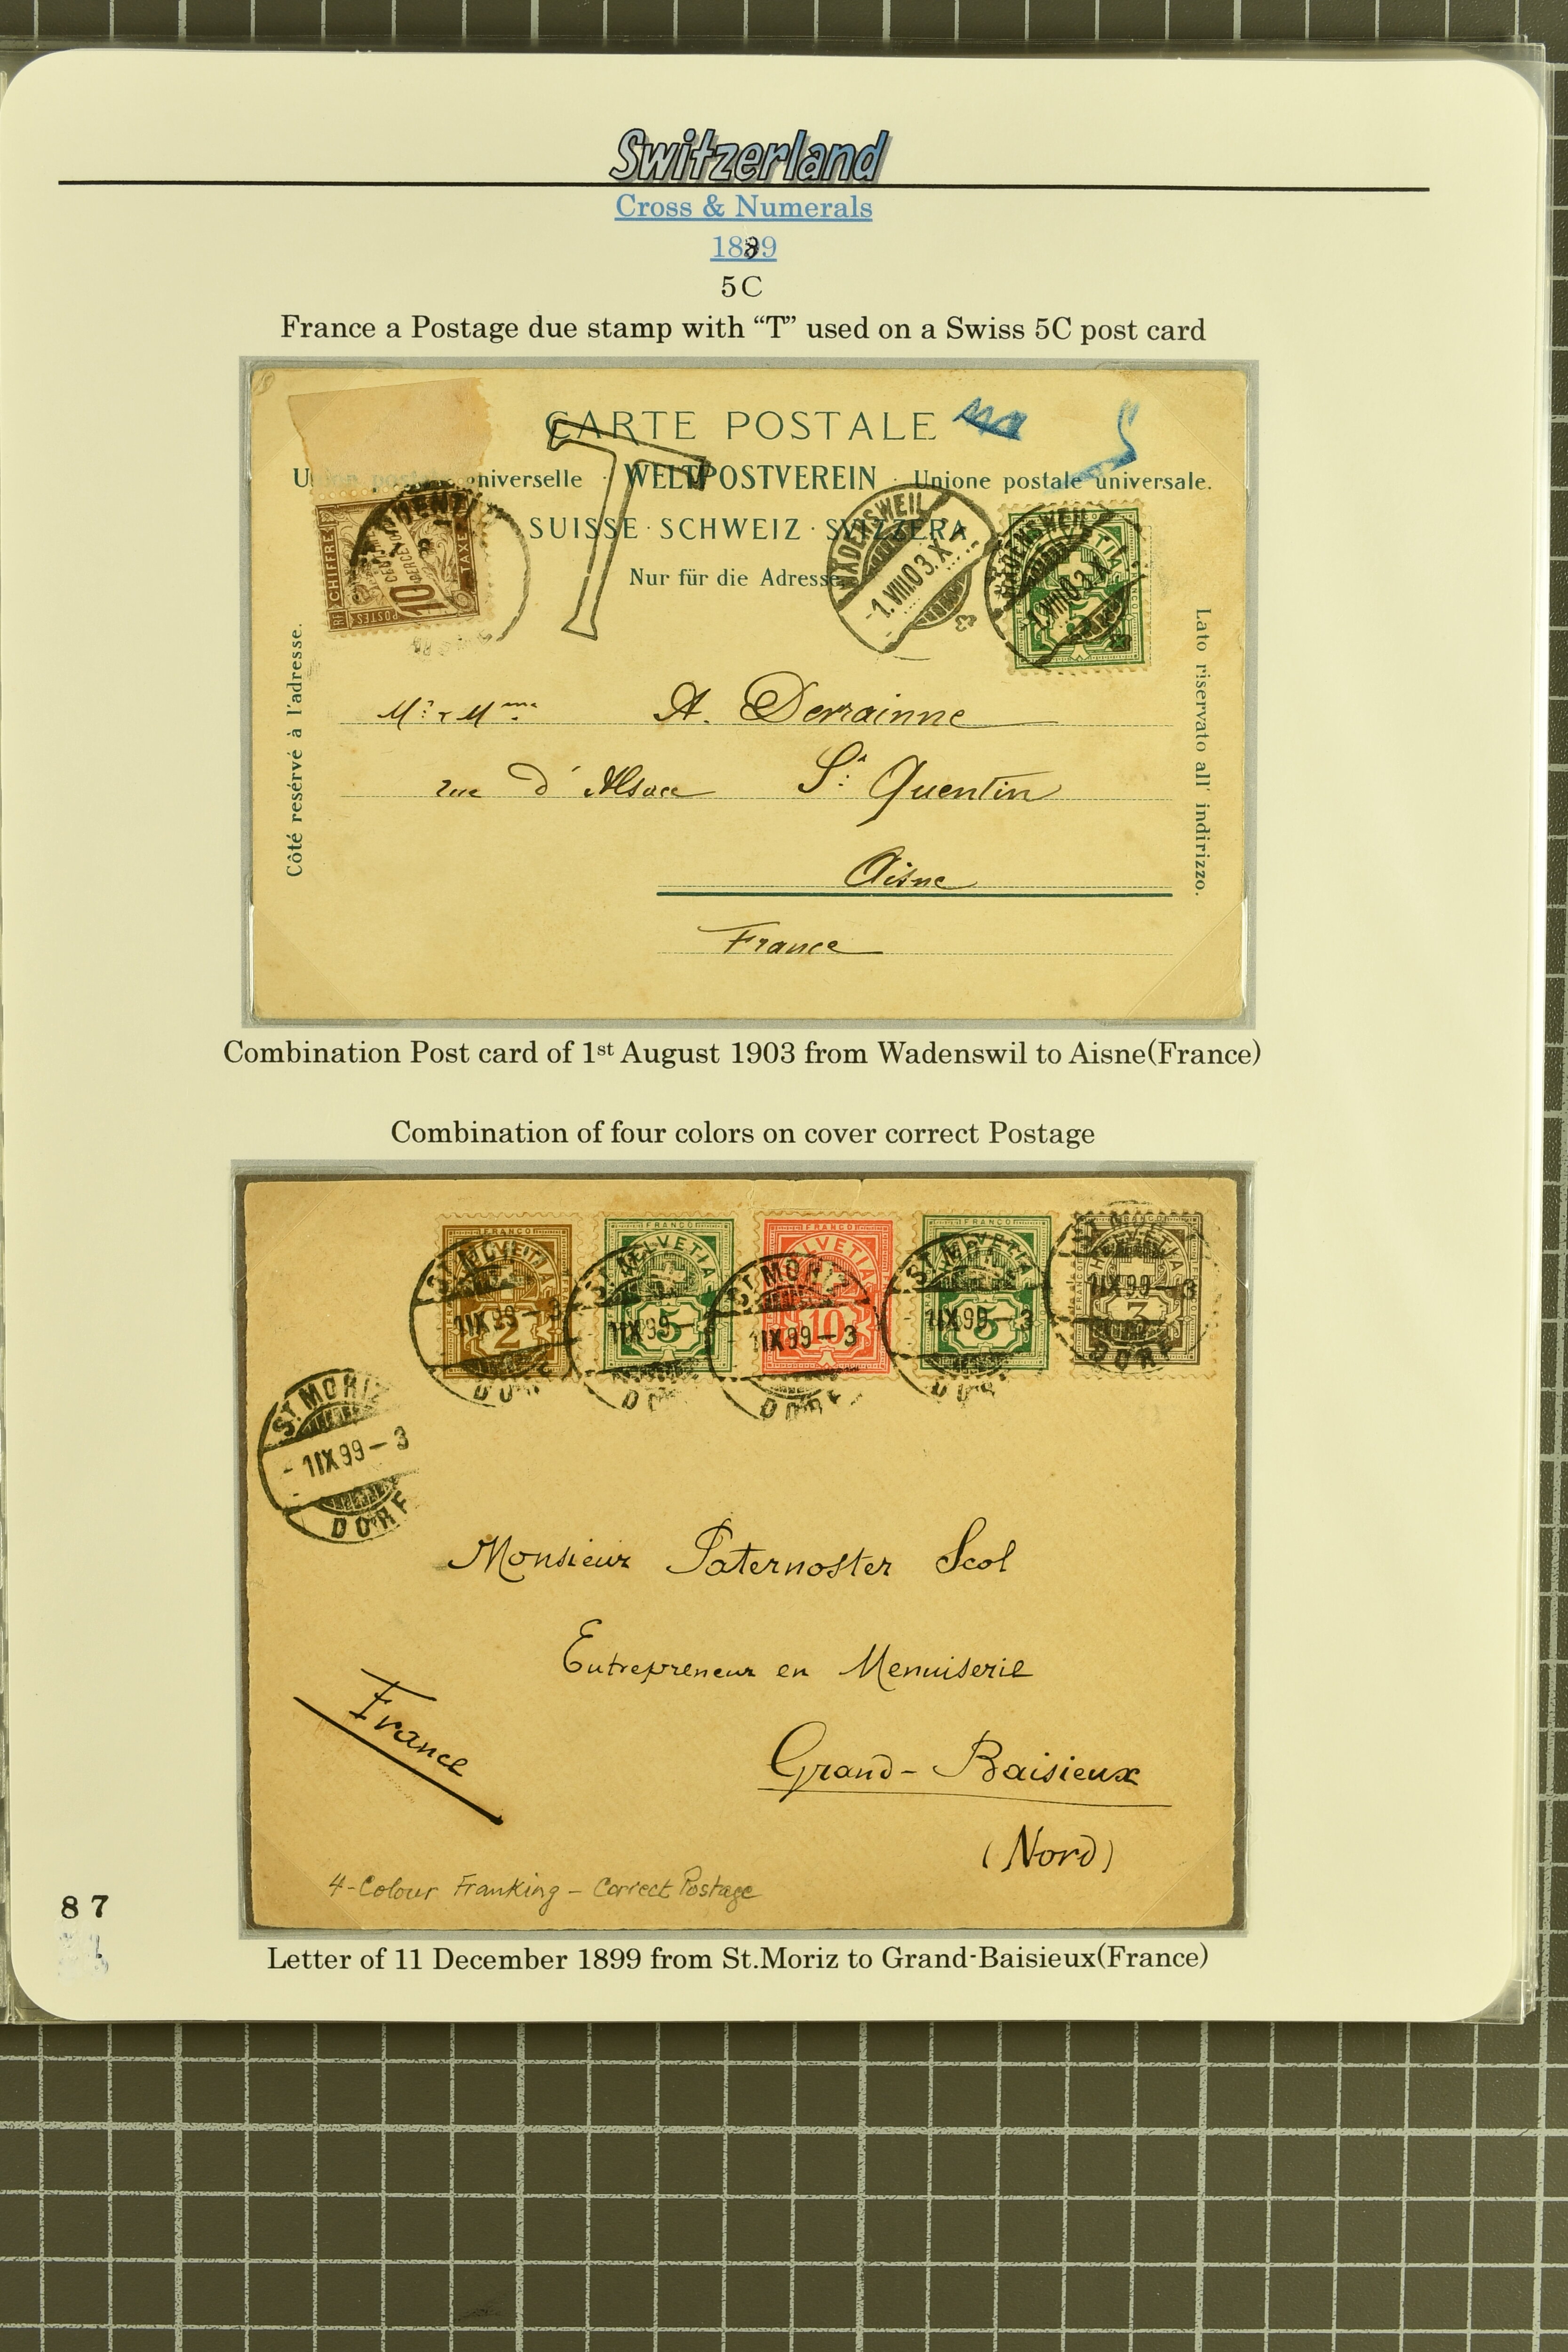 Switzerland
Cross & Numerals
1899
5C
France a Postage due stamp with “T” used on a Swiss 5C post card
CARTE POSTALE
universelle · WELTPOSTVEREIN · Unione postale universale.
SUISSE · SCHWEIZ · SVIZZERA
Nur für die Adresse
T
5
CHIFFRE TAXE
10 CENTIMES
POSTES
RF
WÄDENSWEIL
-1.VIII.03.X
WÄDENSWEIL
-1.VIII.03.X
5
Côté resérvé à l'adresse.
Lato riservato all' indirizzo.
Mr & Mme A. Derrainne
rue d'Alsace St Quentin
Aisne
France
Combination Post card of 1st August 1903 from Wadenswil to Aisne(France)
Combination of four colors on cover correct Postage
FRANCO HELVETIA 2
FRANCO HELVETIA 5
FRANCO HELVETIA 10
FRANCO HELVETIA 5
FRANCO HELVETIA 3
ST. MORITZ
-1IX99-3
DORF
Monsieur Paternoster Scol
Entrepreneur en Menuiserie
France
Grand-Baisieux
(Nord)
4-Colour Franking - Correct Postage
87
Letter of 11 December 1899 from St.Moriz to Grand-Baisieux(France)